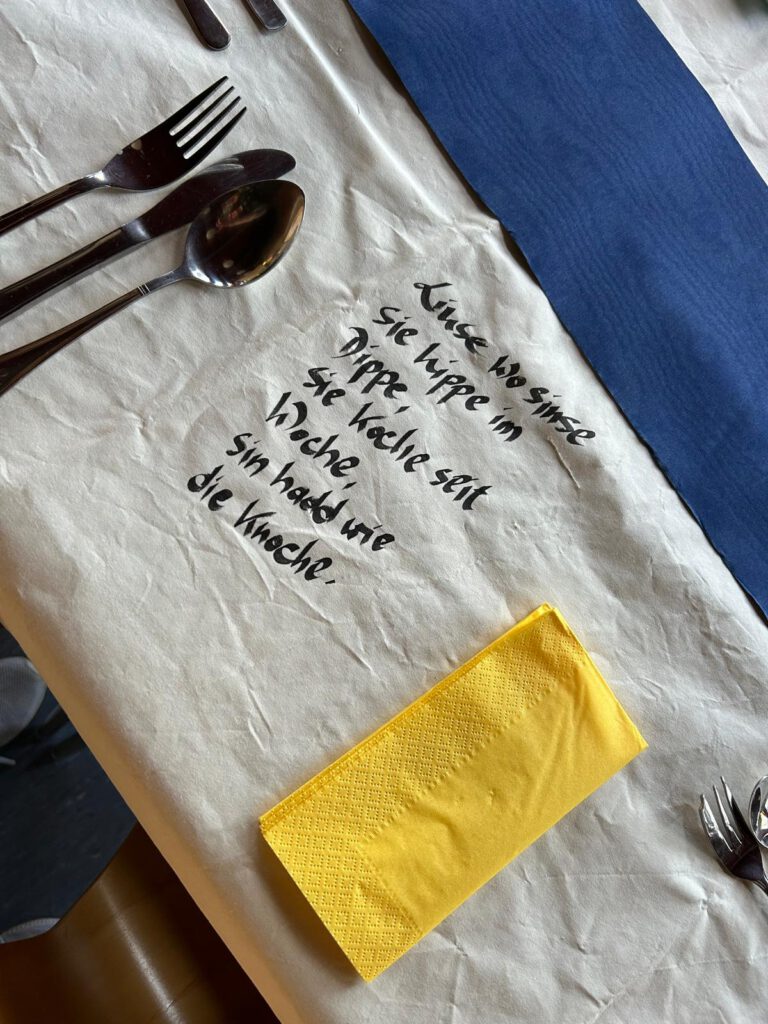 Linse wo sinse
sie hippe im
Dippe,
sie koche seit
Woche,
sin hadd wie
die Knoche.